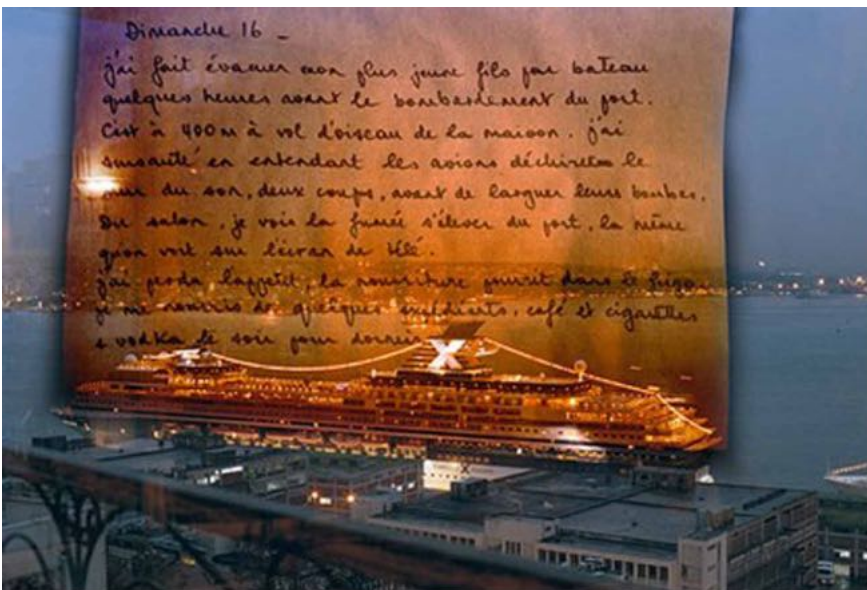 Dimanche 16 -
j'ai fait évacuer mon plus jeune fils par bateau
quelques heures avant le bombardement du port.
C'est à 400m à vol d'oiseau de la maison. j'ai
sursauté en entendant les avions déchirer le
mur du son, deux coups, avant de larguer leurs bombes.
Du salon, je vois la fumée s'élever du port, la même
qu'on voit sur l'écran de télé.
j'ai perdu l'appétit, la nourriture pourrit dans le frigo
je me nourris de quelques expédients, café et cigarettes
& vodka le soir pour dormir
X